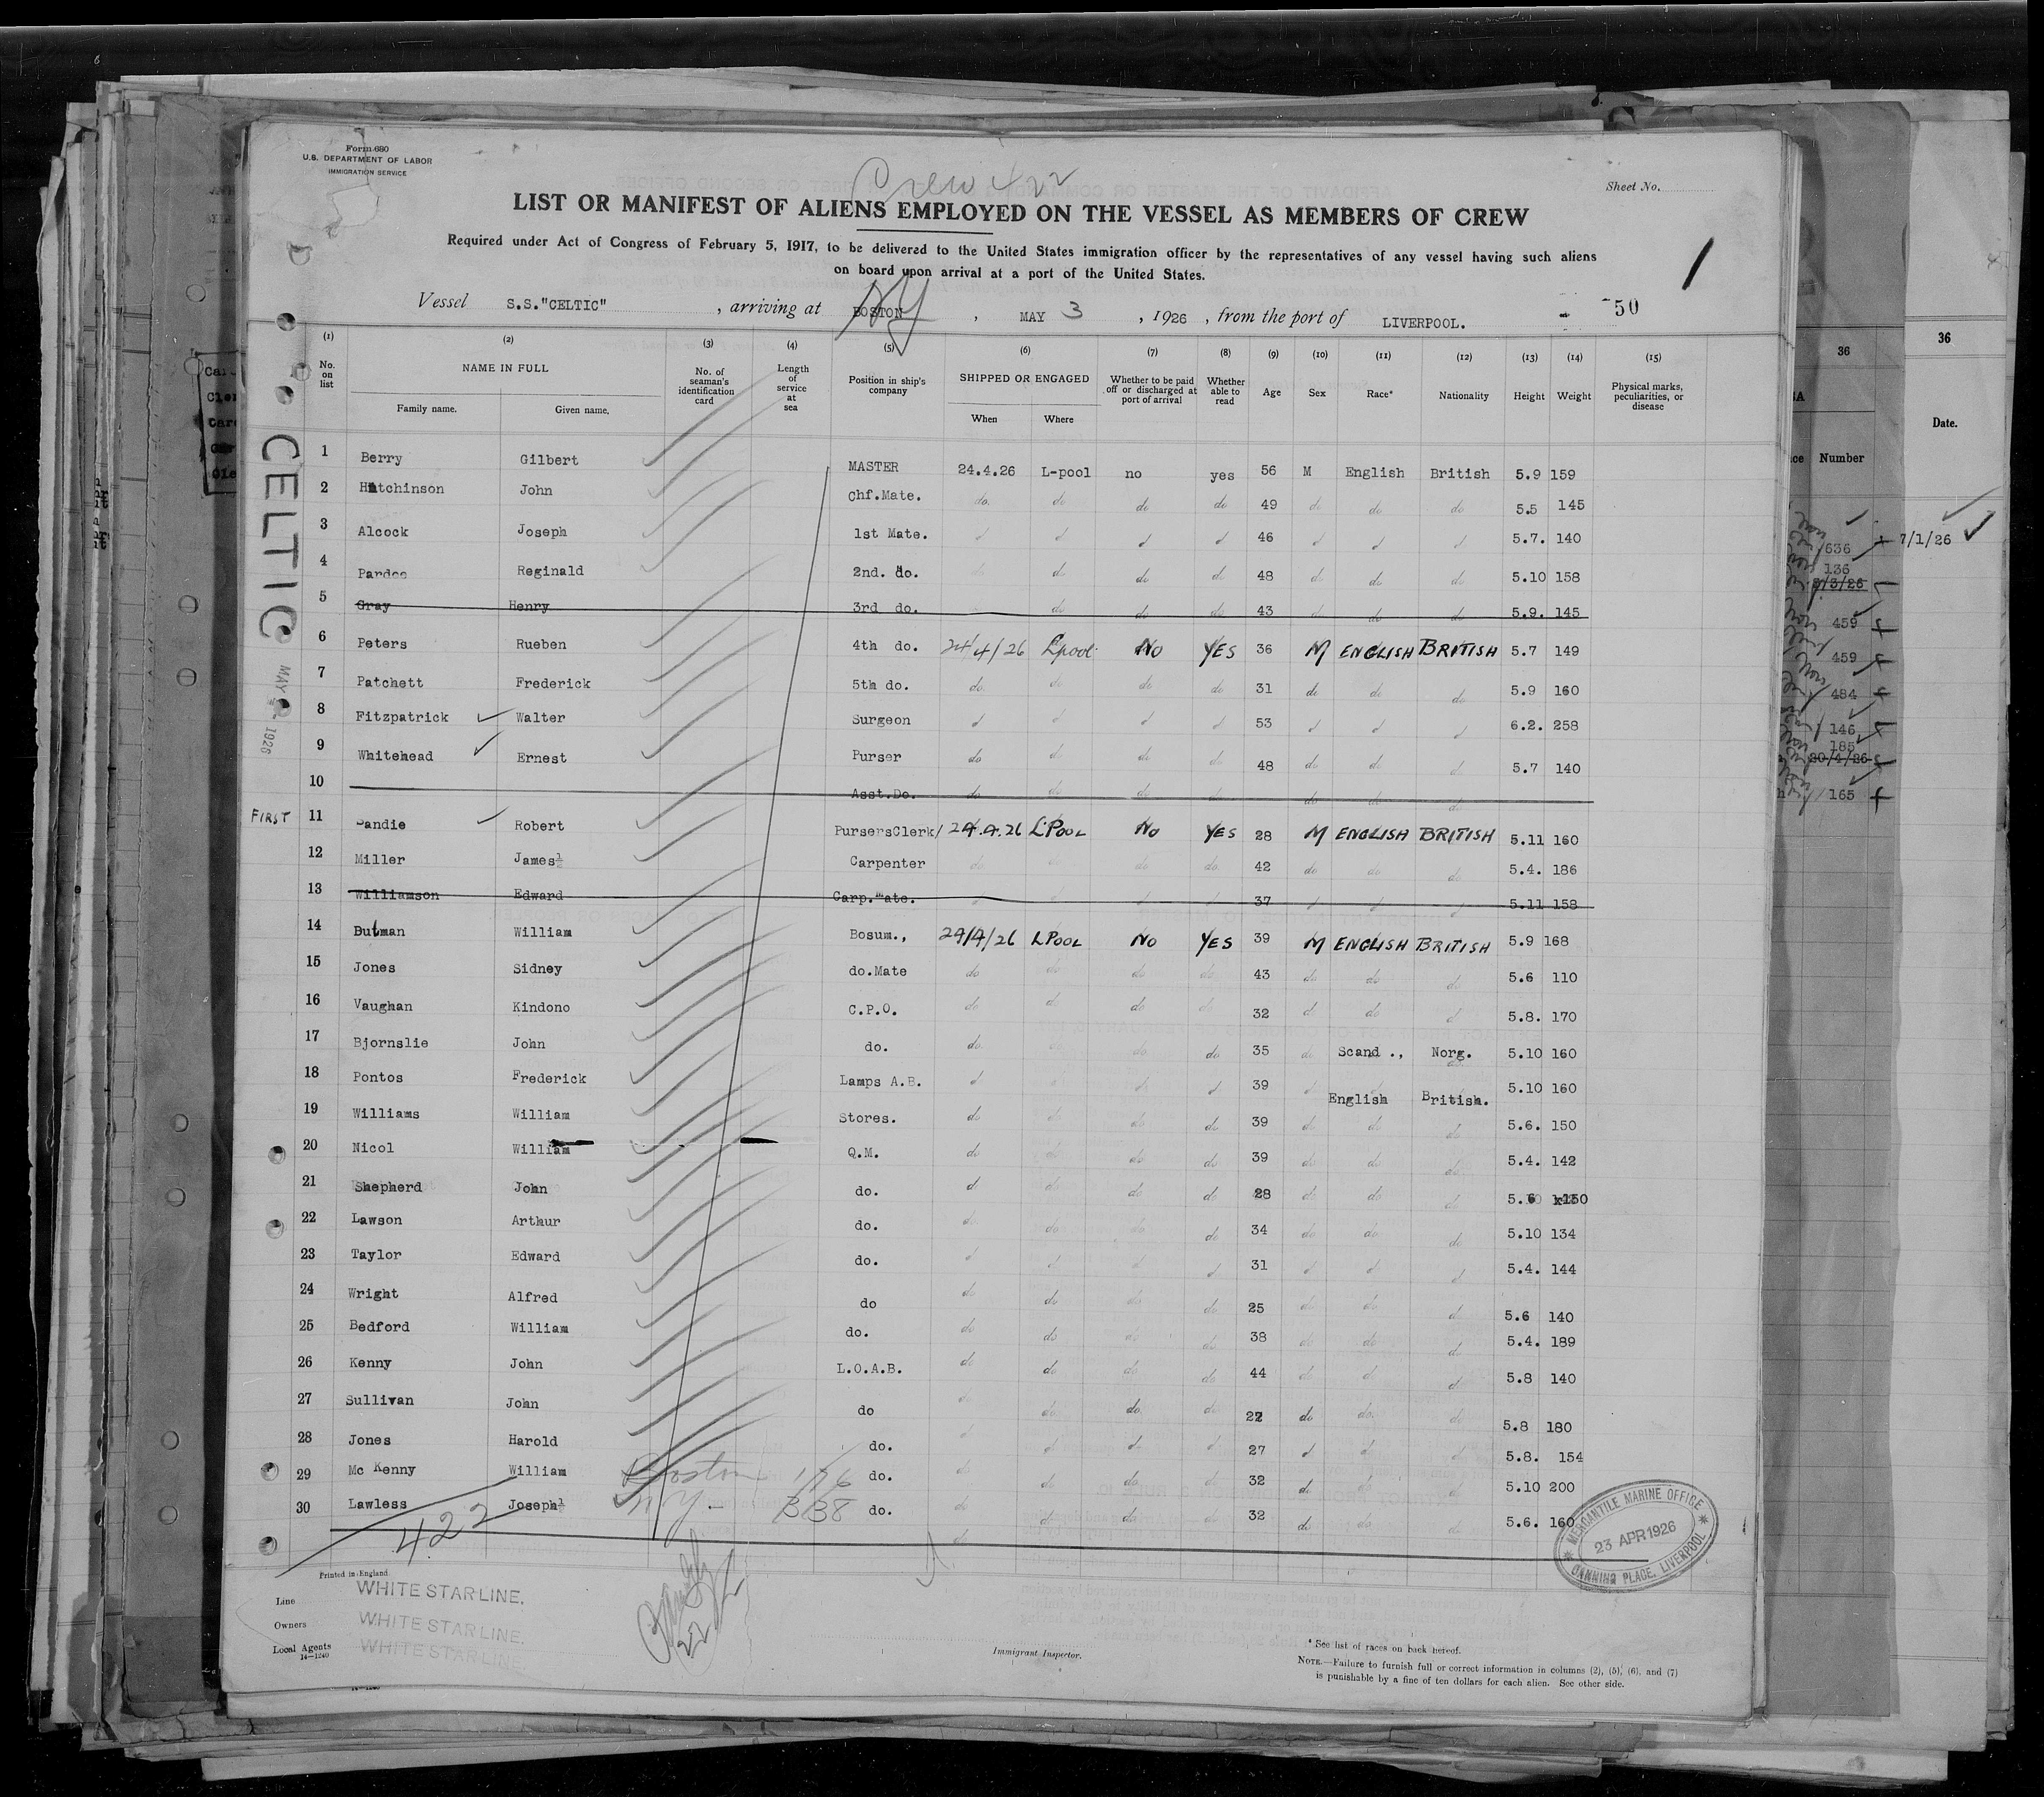 Form 680
U.S. DEPARTMENT OF LABOR
IMMIGRATION SERVICE
Crew 422
Sheet No.
LIST OR MANIFEST OF ALIENS EMPLOYED ON THE VESSEL AS MEMBERS OF CREW
Required under Act of Congress of February 5, 1917, to be delivered to the United States immigration officer by the representatives of any vessel having such aliens
on board upon arrival at a port of the United States.
1
Vessel S.S."CELTIC" , arriving at BOSTON NY , MAY 3 , 1926 , from the port of LIVERPOOL. 50
(1) (2) (3) (4) (5) (6) (7) (8) (9) (10) (11) (12) (13) (14) (15)
No. on list NAME IN FULL No. of seaman's identification card Length of service at sea Position in ship's company SHIPPED OR ENGAGED Whether to be paid off or discharged at port of arrival Whether able to read Age Sex Race* Nationality Height Weight Physical marks, peculiarities, or disease
Family name. Given name. When Where
CELTIC
MAY 1926
1 Berry Gilbert MASTER 24.4.26 L-pool no yes 56 M English British 5.9 159
2 Hutchinson John Chf.Mate. do. do do do 49 do do do 5.5 145
3 Alcock Joseph 1st Mate. 46 5.7. 140
4 Pardoe Reginald 2nd. do. do do do 48 do do do 5.10 158
5 Gray Henry 3rd do. do do do 43 do do do 5.9. 145
6 Peters Rueben 4th do. 24/4/26 Lpool No YES 36 M ENGLISH BRITISH 5.7 149
7 Patchett Frederick 5th do. do do do do 31 do do do 5.9 160
8 Fitzpatrick Walter Surgeon 53 6.2. 258
9 Whitehead Ernest Purser do do do do 48 do do do 5.7 140
10 Asst.Do. do do do do do do do
FIRST 11 Dandie Robert PursersClerk/ 24.4.26 L'POOL No YES 28 M ENGLISH BRITISH 5.11 160
12 Miller James Carpenter do do do 42 do do do 5.4. 186
13 Williamson Edward Carp.Mate. 37 5.11 158
14 Butman William Bosum., 24/4/26 LPOOL No YES 39 M ENGLISH BRITISH 5.9 168
15 Jones Sidney do.Mate do do do do 43 do do do 5.6 110
16 Vaughan Kindono C.P.O. do do do do 32 do 5.8. 170
17 Bjornslie John do. do do do do 35 do Scand ., Norg. 5.10 160
18 Pontos Frederick Lamps A.B. 39 English British. 5.10 160
19 Williams William Stores. do do do do 39 do do do 5.6. 150
20 Nicol William Q.M. do do do do 39 do do do 5.4. 142
21 Shepherd John do. do do do do 28 do do do 5.6 150
22 Lawson Arthur do. do do do do 34 do do do 5.10 134
23 Taylor Edward do. 31 5.4. 144
24 Wright Alfred do do do do do 25 do do do 5.6 140
25 Bedford William do. do do do do 38 do do do 5.4. 189
26 Kenny John L.O.A.B. do do do do 44 5.8 140
27 Sullivan John do do do do do 22 do do do 5.8 180
28 Jones Harold do. 27 5.8. 154
29 Mc Kenny William Boston 176 do. do do do do 32 do do do 5.10 200
30 Lawless Joseph NY - 338 do. do do do do 32 do do do 5.6. 160
422
MERCANTILE MARINE OFFICE
23 APR 1926
CANNING PLACE, LIVERPOOL
Printed in England
Line WHITE STAR LINE.
Owners WHITE STAR LINE.
Local Agents WHITE STAR LINE.
14—1240
Immigrant Inspector.
* See list of races on back hereof.
NOTE.—Failure to furnish full or correct information in columns (2), (5), (6), and (7)
is punishable by a fine of ten dollars for each alien. See other side.
36
Number
636
136
459
459
484
146
185
30/4/26
165
36
Date.
7/1/26